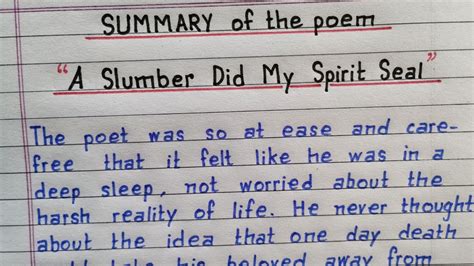 SUMMARY of the poem
“A Slumber Did My Spirit Seal”
The poet was so at ease and care-
free that it felt like he was in a
deep sleep, not worried about the
harsh reality of life. He never thought
about the idea that one day death
could take his beloved away from